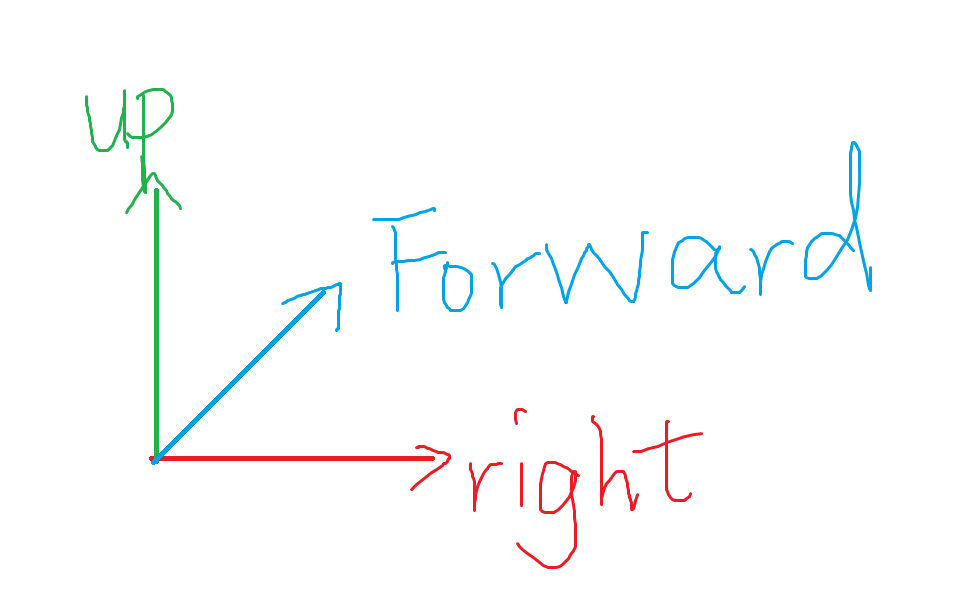 UP
Forward
right